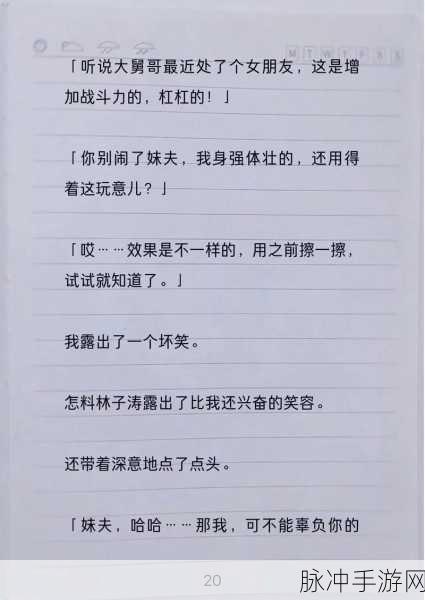 M T W T F S S
「听说大舅哥最近处了个女朋友，这是增
加战斗力的，杠杠的！」
「你别闹了妹夫，我身强体壮的，还用得
着这玩意儿？」
「哎……效果是不一样的，用之前擦一擦，
试试就知道了。」
我露出了一个坏笑。
怎料林子涛露出了比我还兴奋的笑容。
还带着深意地点了点头。
「妹夫，哈哈……那我，可不能辜负你的
20
脉冲手游网